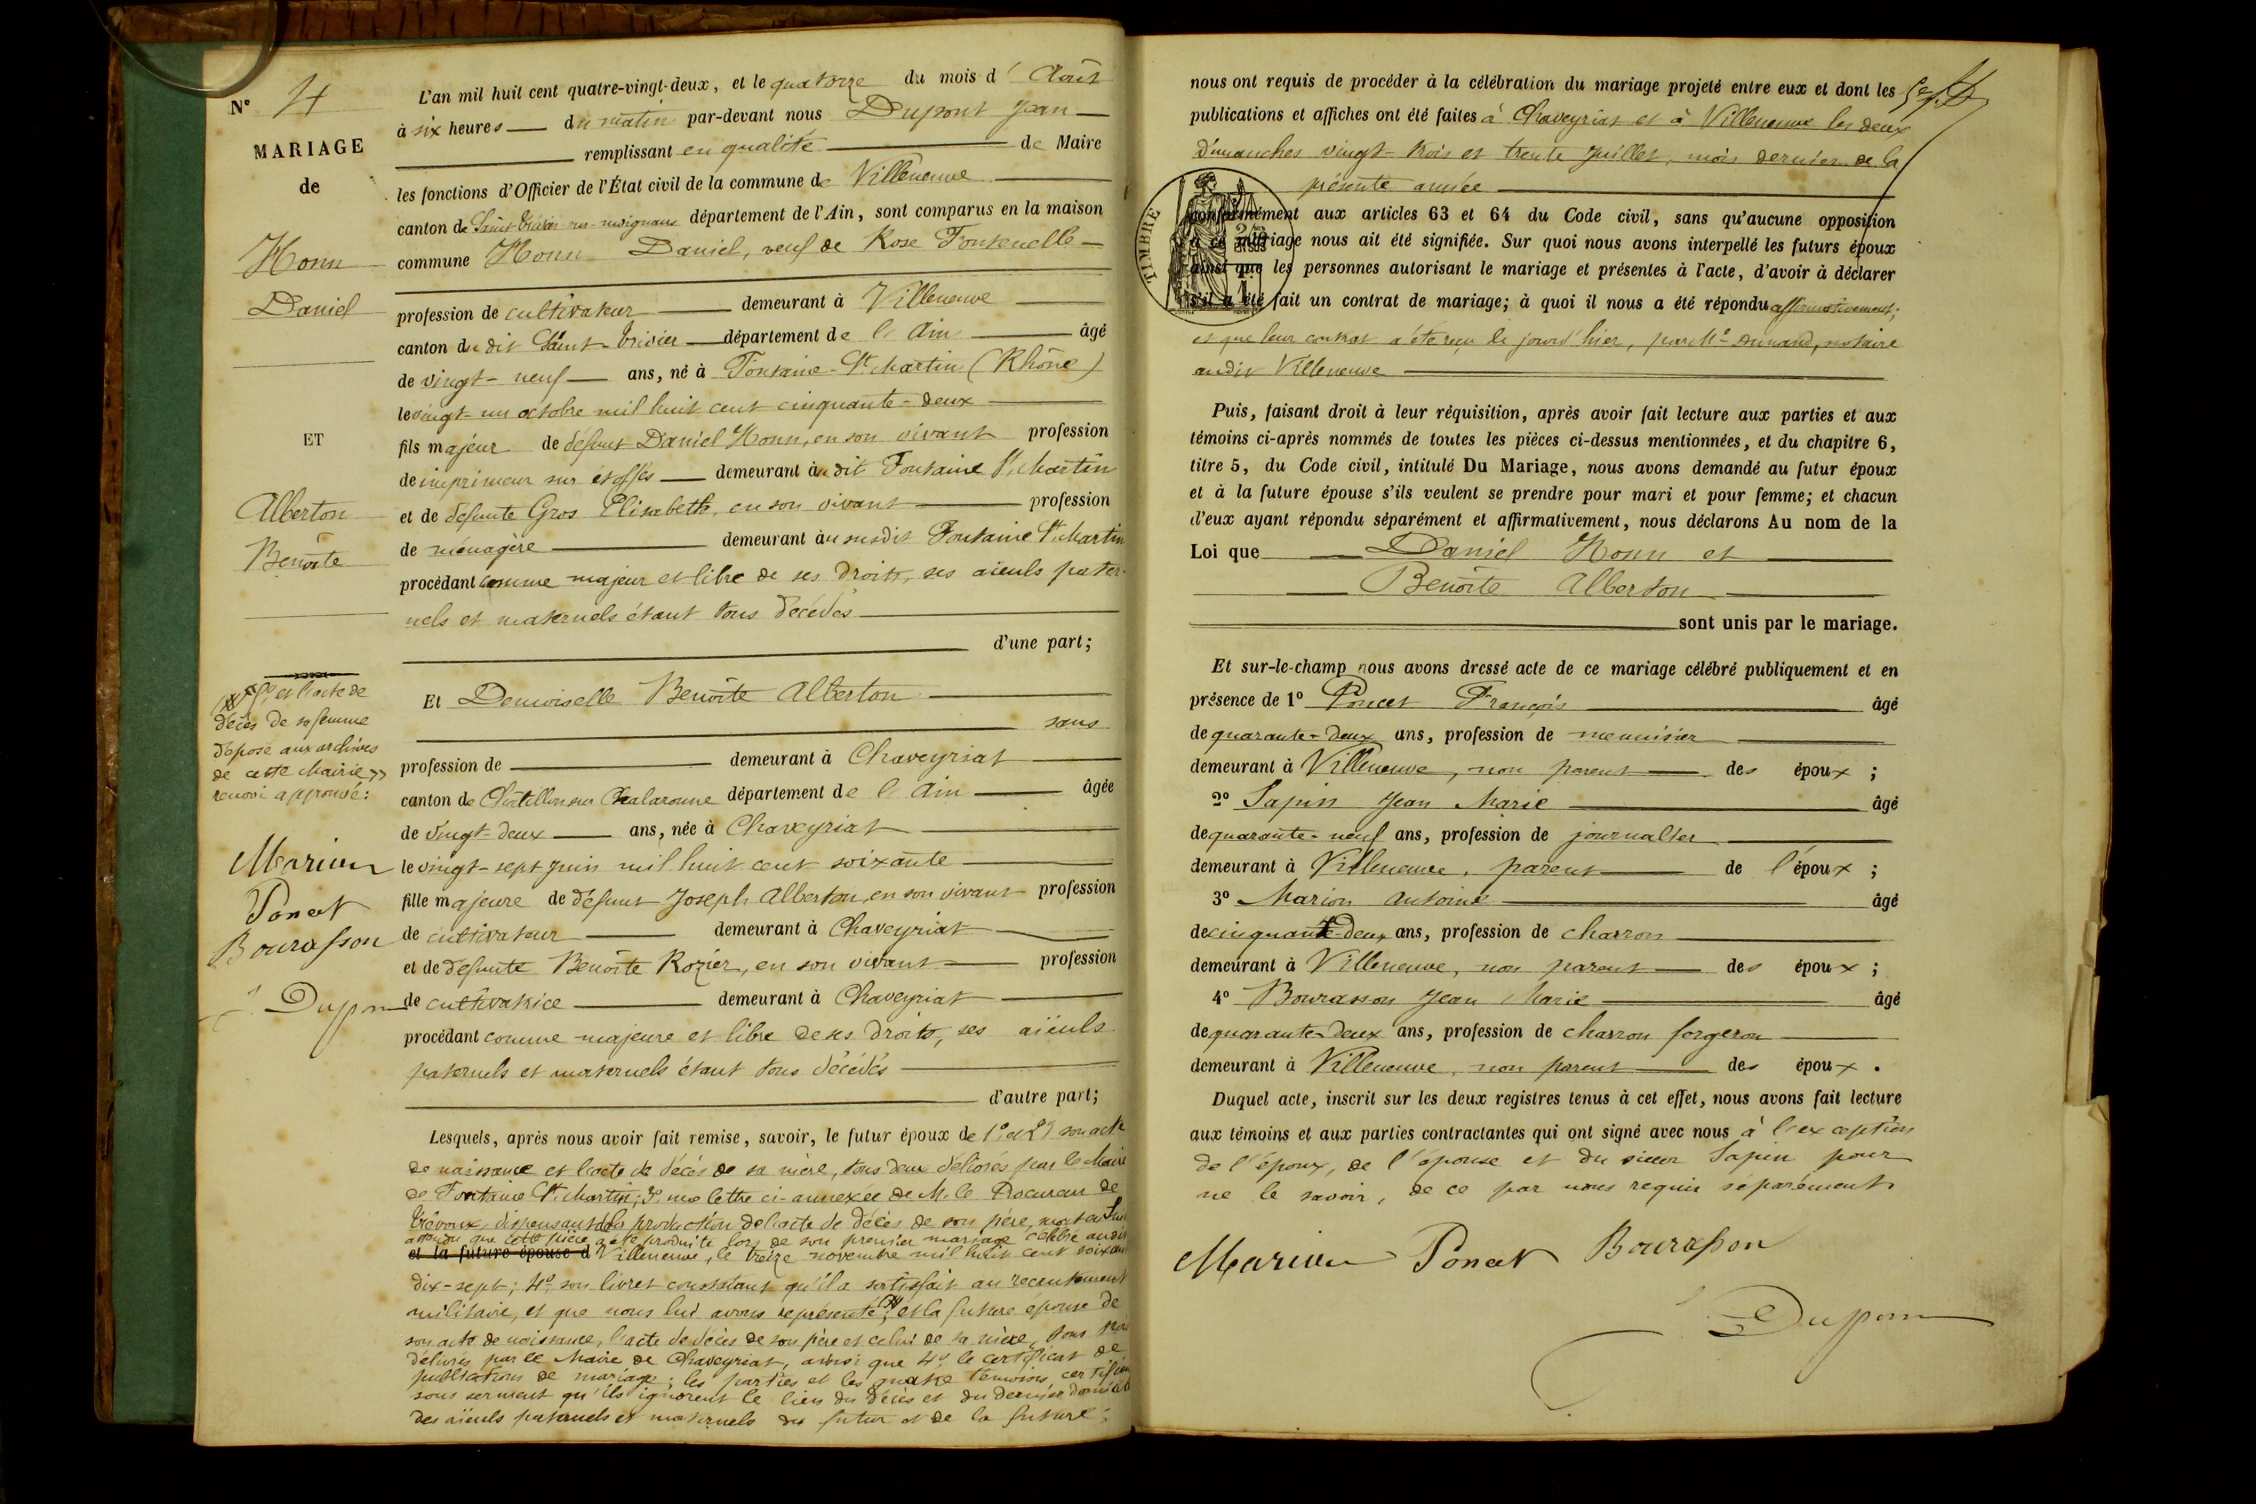 N° 4
MARIAGE
de
Honn
Daniel
ET
Alberton
Benoîte
5° et l'acte de
décès de sa femme
déposé aux archives
de cette Mairie »
renvoi approuvé :
Marion
Poncet
Bourasson
Dupont
L'an mil huit cent quatre-vingt-deux, et le quatorze du mois d' Août
à six heures du matin par-devant nous Dupont Jean
remplissant en qualité de Maire
les fonctions d'Officier de l'État civil de la commune de Villeneuve
canton de Saint Trivier-sur-moignans département de l'Ain, sont comparus en la maison
commune Honn Daniel, veuf de Rose Fontenelle
profession de cultivateur demeurant à Villeneuve
canton du dit Saint-Trivier département de l'Ain âgé
de vingt-neuf ans, né à Fontaine-St Martin (Rhône)
le vingt-un octobre mil huit cent cinquante-deux
fils majeur de défunt Daniel Honn, en son vivant profession
de imprimeur sur étoffes demeurant au dit Fontaine St Martin
et de défunte Gros Elisabeth, en son vivant profession
de ménagère demeurant au susdit Fontaine St Martin
procédant comme majeur et libre de ses droits, ses aïeuls pater-
nels et maternels étant tous décédés
d'une part;
Et Demoiselle Benoîte Alberton
sans
profession de demeurant à Chaveyriat
canton de Châtillon sur Chalaronne département de l'Ain âgée
de vingt-deux ans, née à Chaveyriat
le vingt-sept juin mil huit cent soixante
fille majeure de défunt Joseph Alberton, en son vivant profession
de cultivateur demeurant à Chaveyriat
et de défunte Benoîte Rozier, en son vivant profession
de cultivatrice demeurant à Chaveyriat
procédant comme majeure et libre de ses droits, ses aïeuls
paternels et maternels étant tous décédés
d'autre part;
Lesquels, après nous avoir fait remise, savoir, le futur époux de 1° et 2° son acte
de naissance et l'acte de décès de sa mère, tous deux délivrés par le Maire
de Fontaine St Martin; 3° une lettre ci-annexée de M. le Procureur de
Trévoux, dispensant de la production de l'acte de décès de son père,
attendu que cette pièce a été produite lors de son premier mariage célébré audit
et la future épouse d Villeneuve, le treize novembre mil huit cent soixante
dix-sept; 4° son livret constatant qu'il a satisfait au recrutement
militaire, et que nous lui avons représenté; et la future épouse de
son acte de naissance, l'acte de décès de son père et celui de sa mère, tous trois
délivrés par le Maire de Chaveyriat, ainsi que 4° le certificat de
publications de mariage; les parties et les quatre témoins certifient
sous serment qu'ils ignorent le lieu du décès et du dernier domicile
des aïeuls paternels et maternels du futur et de la future;
nous ont requis de procéder à la célébration du mariage projeté entre eux et dont les
publications et affiches ont été faites à Chaveyriat et à Villeneuve les deux
dimanches vingt-trois et trente Juillet, mois dernier de la
présente année
TIMBRE
2/10
EN SUS
conformément aux articles 63 et 64 du Code civil, sans qu'aucune opposition
à ce mariage nous ait été signifiée. Sur quoi nous avons interpellé les futurs époux
ainsi que les personnes autorisant le mariage et présentes à l'acte, d'avoir à déclarer
s'il a été fait un contrat de mariage; à quoi il nous a été répondu affirmativement;
et que leur contrat a été reçu le jourd'hier, par Me Dunand, notaire
audit Villeneuve
Puis, faisant droit à leur réquisition, après avoir fait lecture aux parties et aux
témoins ci-après nommés de toutes les pièces ci-dessus mentionnées, et du chapitre 6,
titre 5, du Code civil, intitulé Du Mariage, nous avons demandé au futur époux
et à la future épouse s'ils veulent se prendre pour mari et pour femme; et chacun
d'eux ayant répondu séparément et affirmativement, nous déclarons Au nom de la
Loi que Daniel Honn et
Benoîte Alberton
sont unis par le mariage.
Et sur-le-champ nous avons dressé acte de ce mariage célébré publiquement et en
présence de 1° Poncet François âgé
de quarante-deux ans, profession de menuisier
demeurant à Villeneuve, non parent des époux ;
2° Sapin Jean Marie âgé
de quarante-neuf ans, profession de journalier
demeurant à Villeneuve, parent de l'époux ;
3° Marion Antoine âgé
de cinquante-deux ans, profession de charron
demeurant à Villeneuve, non parent des époux ;
4° Bourasson Jean Marie âgé
de quarante-deux ans, profession de charron forgeron
demeurant à Villeneuve, non parent des époux .
Duquel acte, inscrit sur les deux registres tenus à cet effet, nous avons fait lecture
aux témoins et aux parties contractantes qui ont signé avec nous à l'exception
de l'époux, de l'épouse et du sieur Sapin pour
ne le savoir, de ce par nous requis séparément
Marion Poncet Bourasson
Dupont